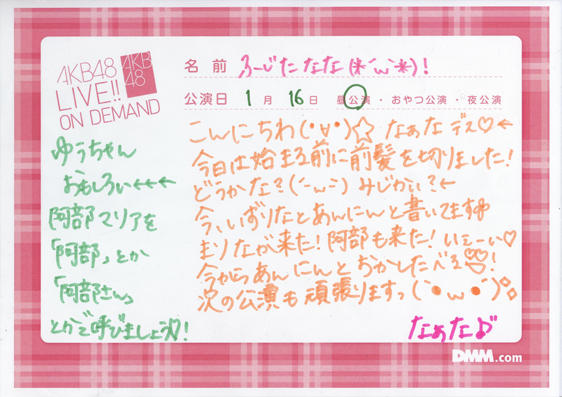 AKB48
LIVE!!
ON DEMAND
AKB
48
名前 ふーじた なな (*´ω`*)！
公演日 1月 16日 昼公演・おやつ公演・夜公演
こんにちわ(・∀・)☆ なぁなデス♡←
今日は始まる前に前髪を切りました！
どうかな？(´-ω-) みじかい？←
今、いずりなとあんにんと書いてますゆ
まりなが来た！阿部も来た！いぇーい♡
今からあんにんとおかしたべる！
次の公演も頑張りますっ(`・ω・´)
なぁな♪
ゆうちゃん
おもしろい←←←
阿部マリアを
「阿部」とか
「阿部さん」
とかで呼びましょう♡！
DMM.com